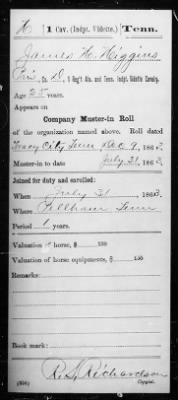 H | 1 Cav. (Indpt. Vidette.) | Tenn.
James H. Higgins
Pri, Co. D, 1 Reg't Ala. and Tenn. Indpt. Vidette Cavalry.
Age 25 years.
Appears on
Company Muster-in Roll
of the organization named above. Roll dated
Tracy City, Tenn Dec 9, 1863.
Muster-in to date July 21, 1863.
Joined for duty and enrolled:
When July 21, 1863.
Where Pelham Tenn
Period 1 years.
Valuation of horse, $ 100
Valuation of horse equipments, $ 100
Remarks:
Book mark:
R. S. Richardson
Copyist.